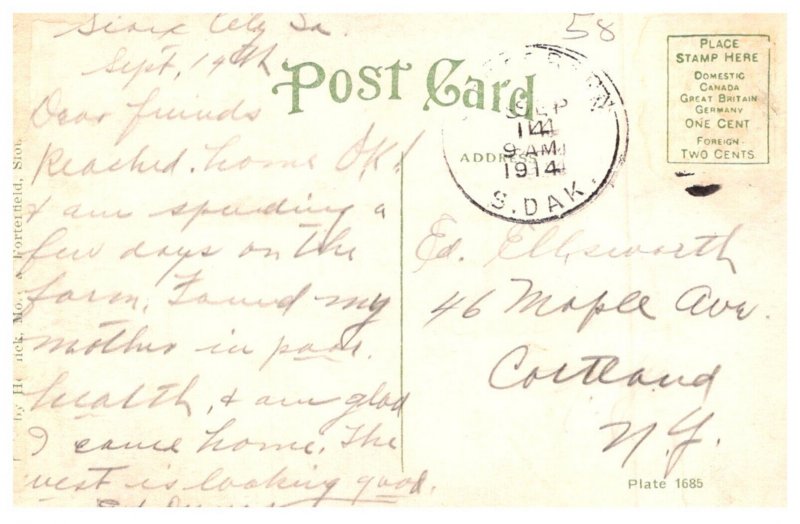 Sioux City Ia.
Sept. 14th
Dear friends
Reached home OK!
& am spending a
few days on the
farm. Found my
mother in poor
health, & am glad
I came home. The
west is looking good.
58
POST CARD
ADDRESS
SEP
14
9 AM
1914
S. DAK.
PLACE
STAMP HERE
DOMESTIC
CANADA
GREAT BRITAIN
GERMANY
ONE CENT
FOREIGN-
TWO CENTS
Ed. Ellsworth
46 Maple Ave.
Cortland
N.Y.
Plate 1685
by